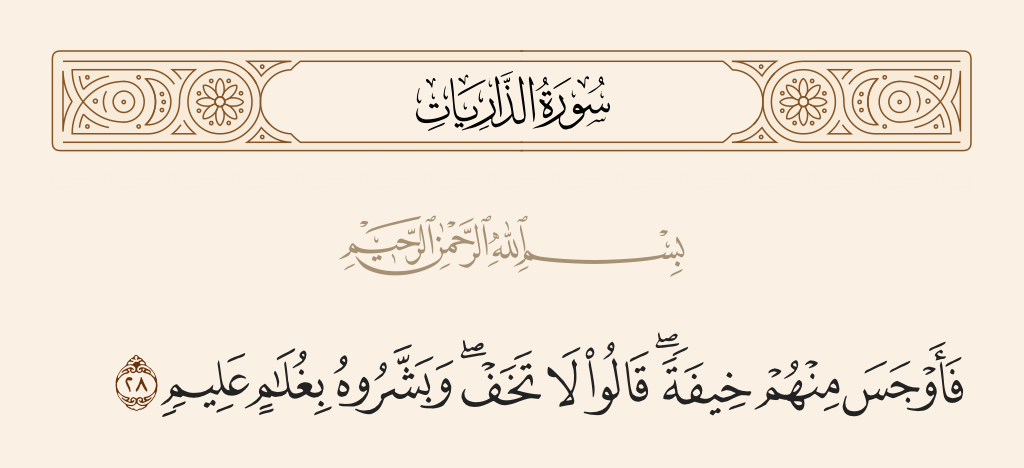 سُورَةُ الذَّارِيَاتِ
بِسْمِ ٱللَّهِ ٱلرَّحْمَٰنِ ٱلرَّحِيمِ
فَأَوْجَسَ مِنْهُمْ خِيفَةً ۖ قَالُوا۟ لَا تَخَفْ ۖ وَبَشَّرُوهُ بِغُلَٰمٍ عَلِيمٍ ٢٨